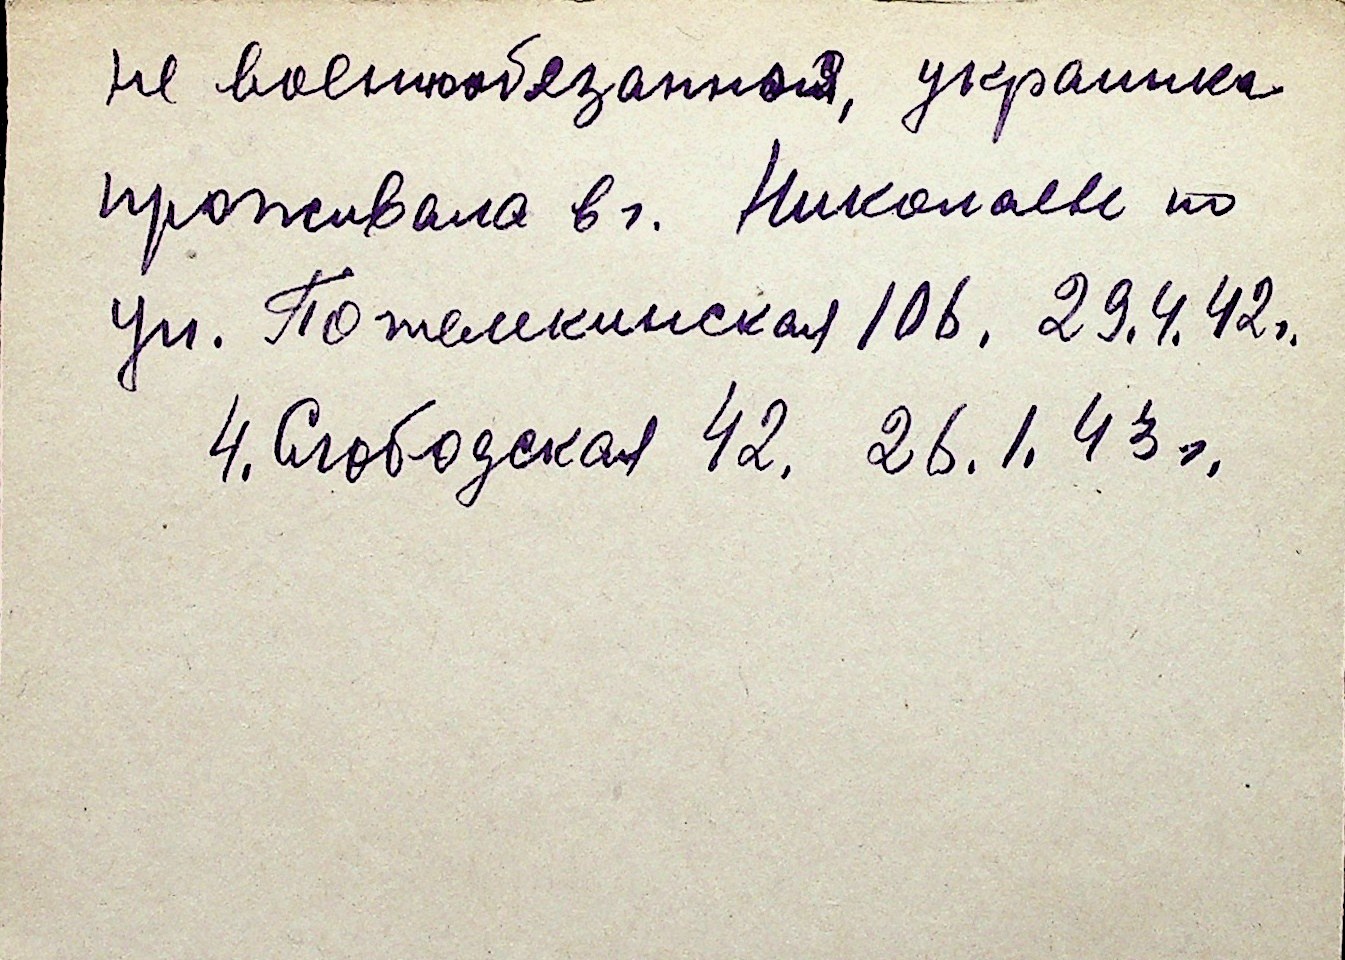 не военнообязанная, украинка
проживала в г. Николаеве по
ул. Потемкинская 106. 29.4.42г.
4. Слободская 42. 26.1.43г.